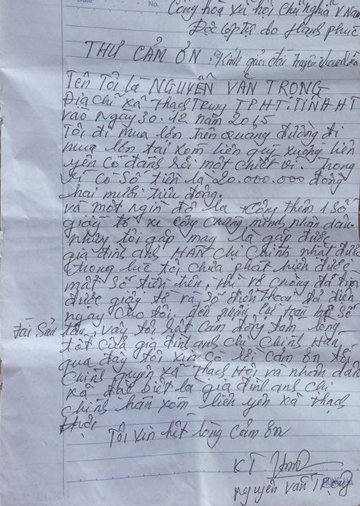 Cộng hòa xã hội chủ nghĩa V Nam
Độc lập tự do Hạnh phúc
THƯ CẢM ƠN
Tên Tôi là NGUYỄN VĂN TRỌNG
Địa chỉ xã Thạch Trung TPHT. TỈNH HT
vào ngày 30.12 năm 2015
Tôi đi mua lợn trên quãng đường đi
mua lợn tại xóm liên quý xuống liên
yên có đánh rơi một chiếc ví. Trong
ví có số tiền là 20.000.000 đồng
hai mươi triệu đồng.
và một nghìn đô la cộng thêm 1 số
giấy tờ xe cộ chứng minh nhân dân
may tôi gặp may là gặp được
gia đình anh HÂN Chị Chinh nhặt được
trong lúc tôi chưa phát hiện được
mất số tiền trên. thì vợ chồng đã tìm
được giấy tờ và số điện thoại để điện
ngay cho tôi. đến nhận lại toàn bộ số
Tài Sản trên. Vậy tôi hết cảm động tấm lòng
tốt của gia đình anh chị Chinh Hân
qua đây tôi xin có lời cảm ơn tới
chính quyền xã Thạch Hội và nhân dân
xã đặc biệt là gia đình anh chị
chinh hân xóm liên yên xã Thạch
Hội.
Tôi xin hết lòng cảm ơn
KT
nguyễn văn Trọng